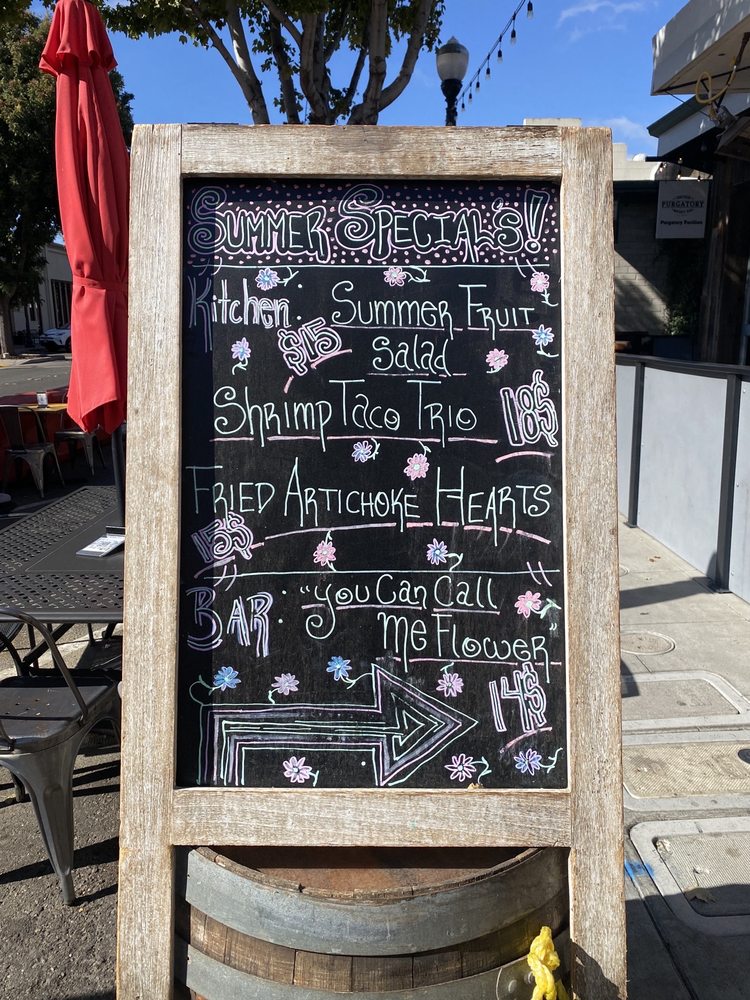 Summer Special's!
Kitchen: Summer Fruit
$15
Salad
Shrimp Taco Trio
18$
Fried Artichoke Hearts
15$
Bar: "You Can Call
Me Flower
14$
PURGATORY
Purgatory Pavilion